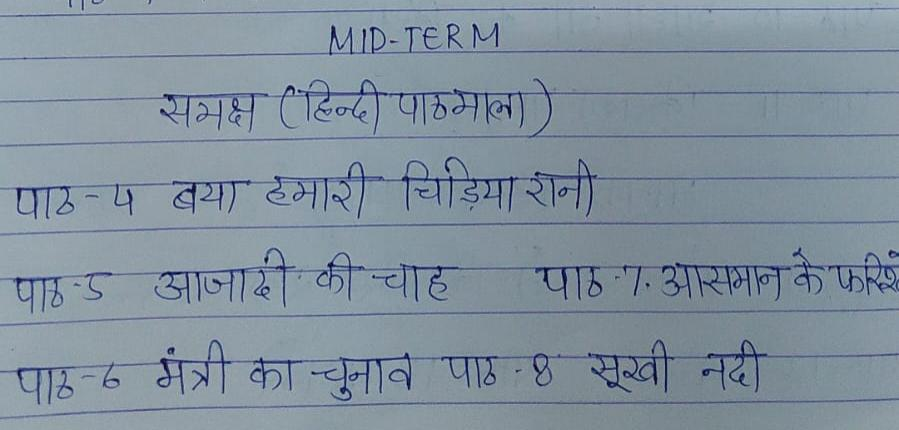 MID-TERM
समक्ष (हिन्दी पाठमाला)
पाठ-4 बया हमारी चिड़िया रानी
पाठ-5 आजादी की चाह पाठ-7. आसमान के फरिश्ते
पाठ-6 मंत्री का चुनाव पाठ-8 सूखी नदी